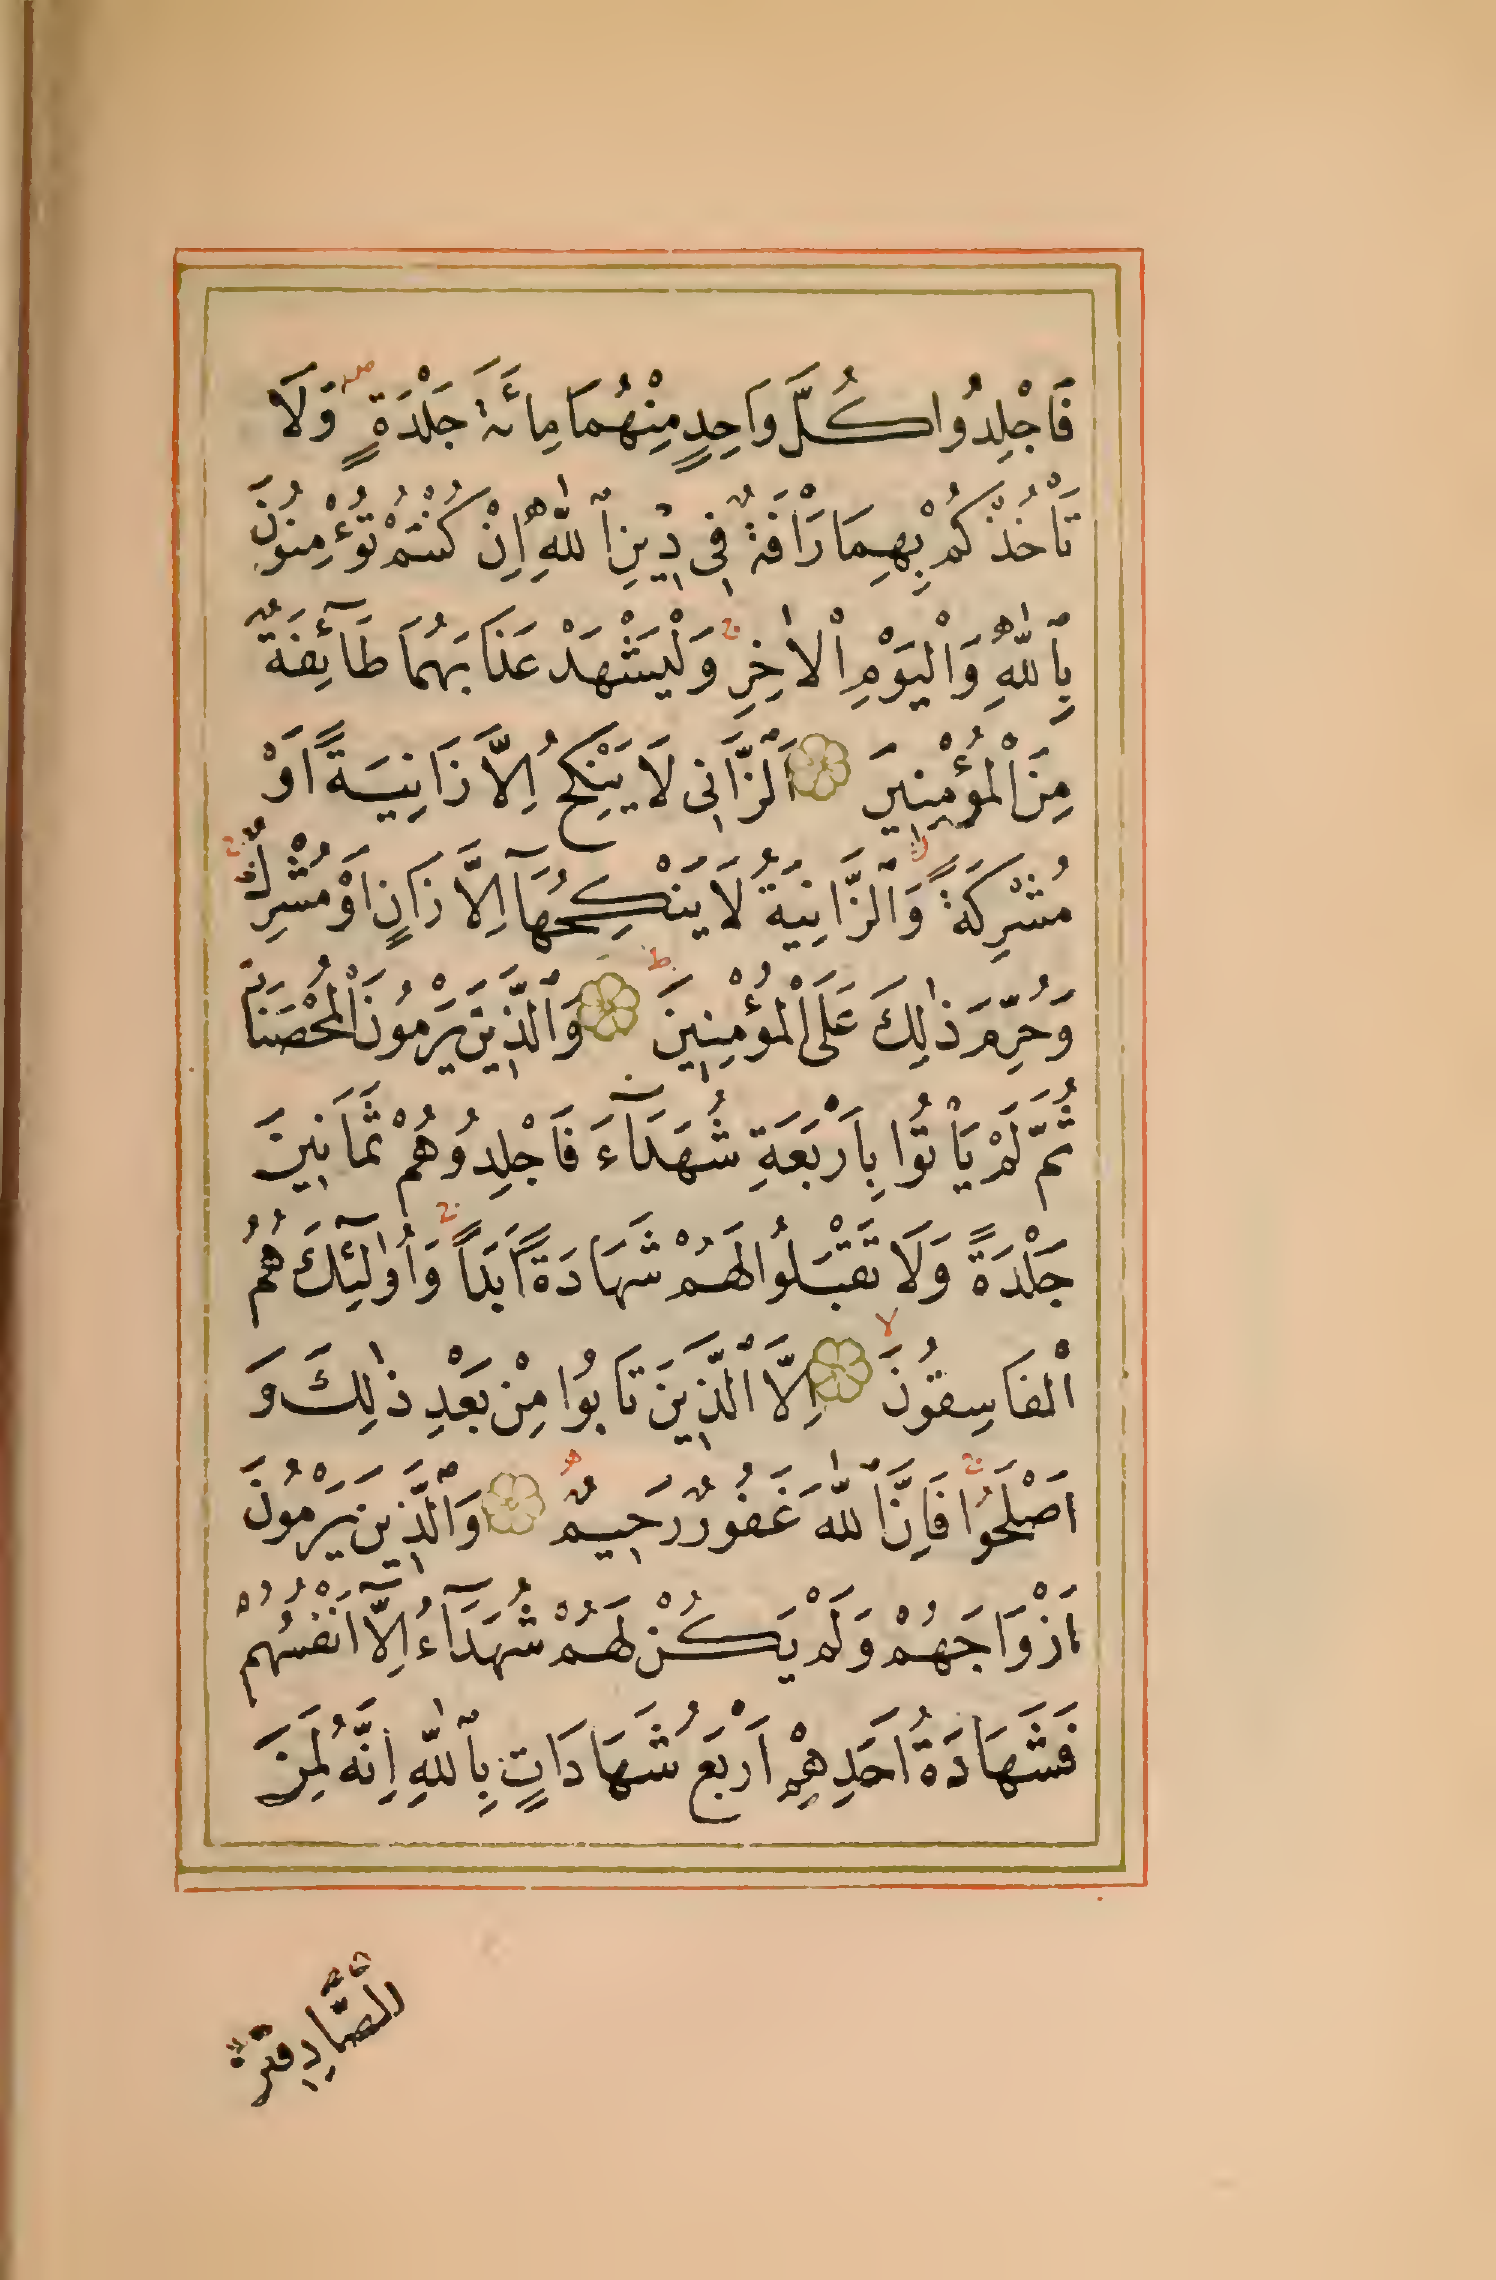 فَاجْلِدُوا كُلَّ وَاحِدٍ مِنْهُمَا مِائَةَ جَلْدَةٍ صلے وَلَا
تَأْخُذْكُمْ بِهِمَا رَأْفَةٌ فِي دِينِ ٱللّٰهِ اِنْ كُنْتُمْ تُؤْمِنُونَ
بِٱللّٰهِ وَالْيَوْمِ الْاٰخِرِ ج وَلْيَشْهَدْ عَذَابَهُمَا طَآئِفَةٌ
مِنَ الْمُؤْمِنِينَ اَلزَّانِي لَا يَنْكِحُ اِلَّا زَانِيَةً اَوْ
مُشْرِكَةً ز وَٱلزَّانِيَةُ لَا يَنْكِحُهَآ اِلَّا زَانٍ اَوْ مُشْرِكٌ ج
وَحُرِّمَ ذٰلِكَ عَلَى الْمُؤْمِنِينَ ط وَٱلَّذِينَ يَرْمُونَ الْمُحْصَنَاتِ
ثُمَّ لَمْ يَأْتُوا بِاَرْبَعَةِ شُهَدَآءَ فَاجْلِدُوهُمْ ثَمَانِينَ
جَلْدَةً وَلَا تَقْبَلُوا لَهُمْ شَهَادَةً اَبَدًا ج وَاُولٰٓئِكَ هُمُ
الْفَاسِقُونَ لا اِلَّا ٱلَّذِينَ تَابُوا مِنْ بَعْدِ ذٰلِكَ وَ
اَصْلَحُوا ج فَاِنَّ ٱللّٰهَ غَفُورٌ رَحِيمٌ ه وَٱلَّذِينَ يَرْمُونَ
اَزْوَاجَهُمْ وَلَمْ يَكُنْ لَهُمْ شُهَدَآءُ اِلَّآ اَنْفُسُهُمْ
فَشَهَادَةُ اَحَدِهِمْ اَرْبَعُ شَهَادَاتٍ بِٱللّٰهِ اِنَّهُ لَمِنَ
الصَّادِقِينَ